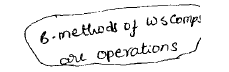 6. methods of WS Comps
are operations